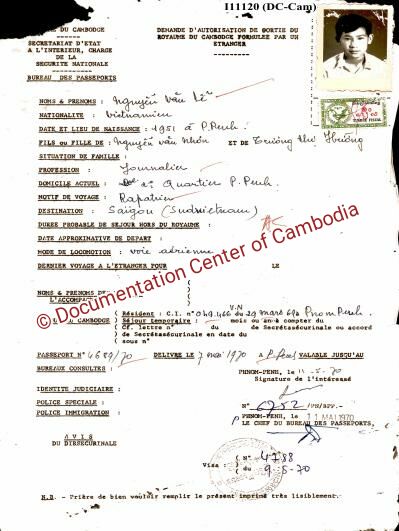 111120 (DC-Cam)
DU CAMBODGE
SECRETARIAT D'ETAT
A L'INTERIEUR, CHARGE
DE LA
SECURITE NATIONALE
BUREAU DES PASSEPORTS
DEMANDE D'AUTORISATION DE SORTIE DU
ROYAUME DU CAMBODGE FORMULEE PAR UN
ETRANGER
NOMS & PRENOMS : Nguyễn Văn Lê
NATIONALITE : Vietnamien
DATE ET LIEU DE NAISSANCE : 1951 à P. Penh
FILS ou FILLE DE : Nguyễn Văn Nhôn ET DE Trương thu Hương
SITUATION DE FAMILLE :
PROFESSION : Journalier
DOMICILE ACTUEL : 2è Quartier P. Penh
MOTIF DE VOYAGE : Rapatrier
DESTINATION : Saigon (Sudvietnam)
DUREE PROBABLE DE SEJOUR HORS DU ROYAUME :
DATE APPROXIMATIVE DE DEPART :
MODE DE LOCOMOTION : voie aérienne
DERNIER VOYAGE A L'ETRANGER POUR LE
NOMS & PRENOMS DE
L'ACCOMPA
CAMBODGE
( Résident : C.I. n° 049.466 V.N du 29 mars 69 à Pnom Penh
( Séjour temporaire : mois ou an à compter du
( Cf. lettre n° du de Secrétasécurinale ou accord
( de Secrétasécurinale en date du
( sous n°
PASSEPORT N° 4609/70 DELIVRE LE 7 mai 1970 à P. Penh VALABLE JUSQU'AU
BUREAUX CONSULTES :
PHNOM-PENH, le 11-5-70
Signature de l'intéressé
IDENTITE JUDICIAIRE :
POLICE SPECIALE :
POLICE IMMIGRATION :
N° 6752 /PN/BPP.-
PHNOM-PENH, le 11 MAI 1970
P LE CHEF DU BUREAU DES PASSEPORTS,
AVIS
DU DIRSECURINALE
Visa : ( N° 4788
( du 9-5-70
N.B. - Prière de bien vouloir remplir le présent imprimé très lisiblement.
© Documentation Center of Cambodia